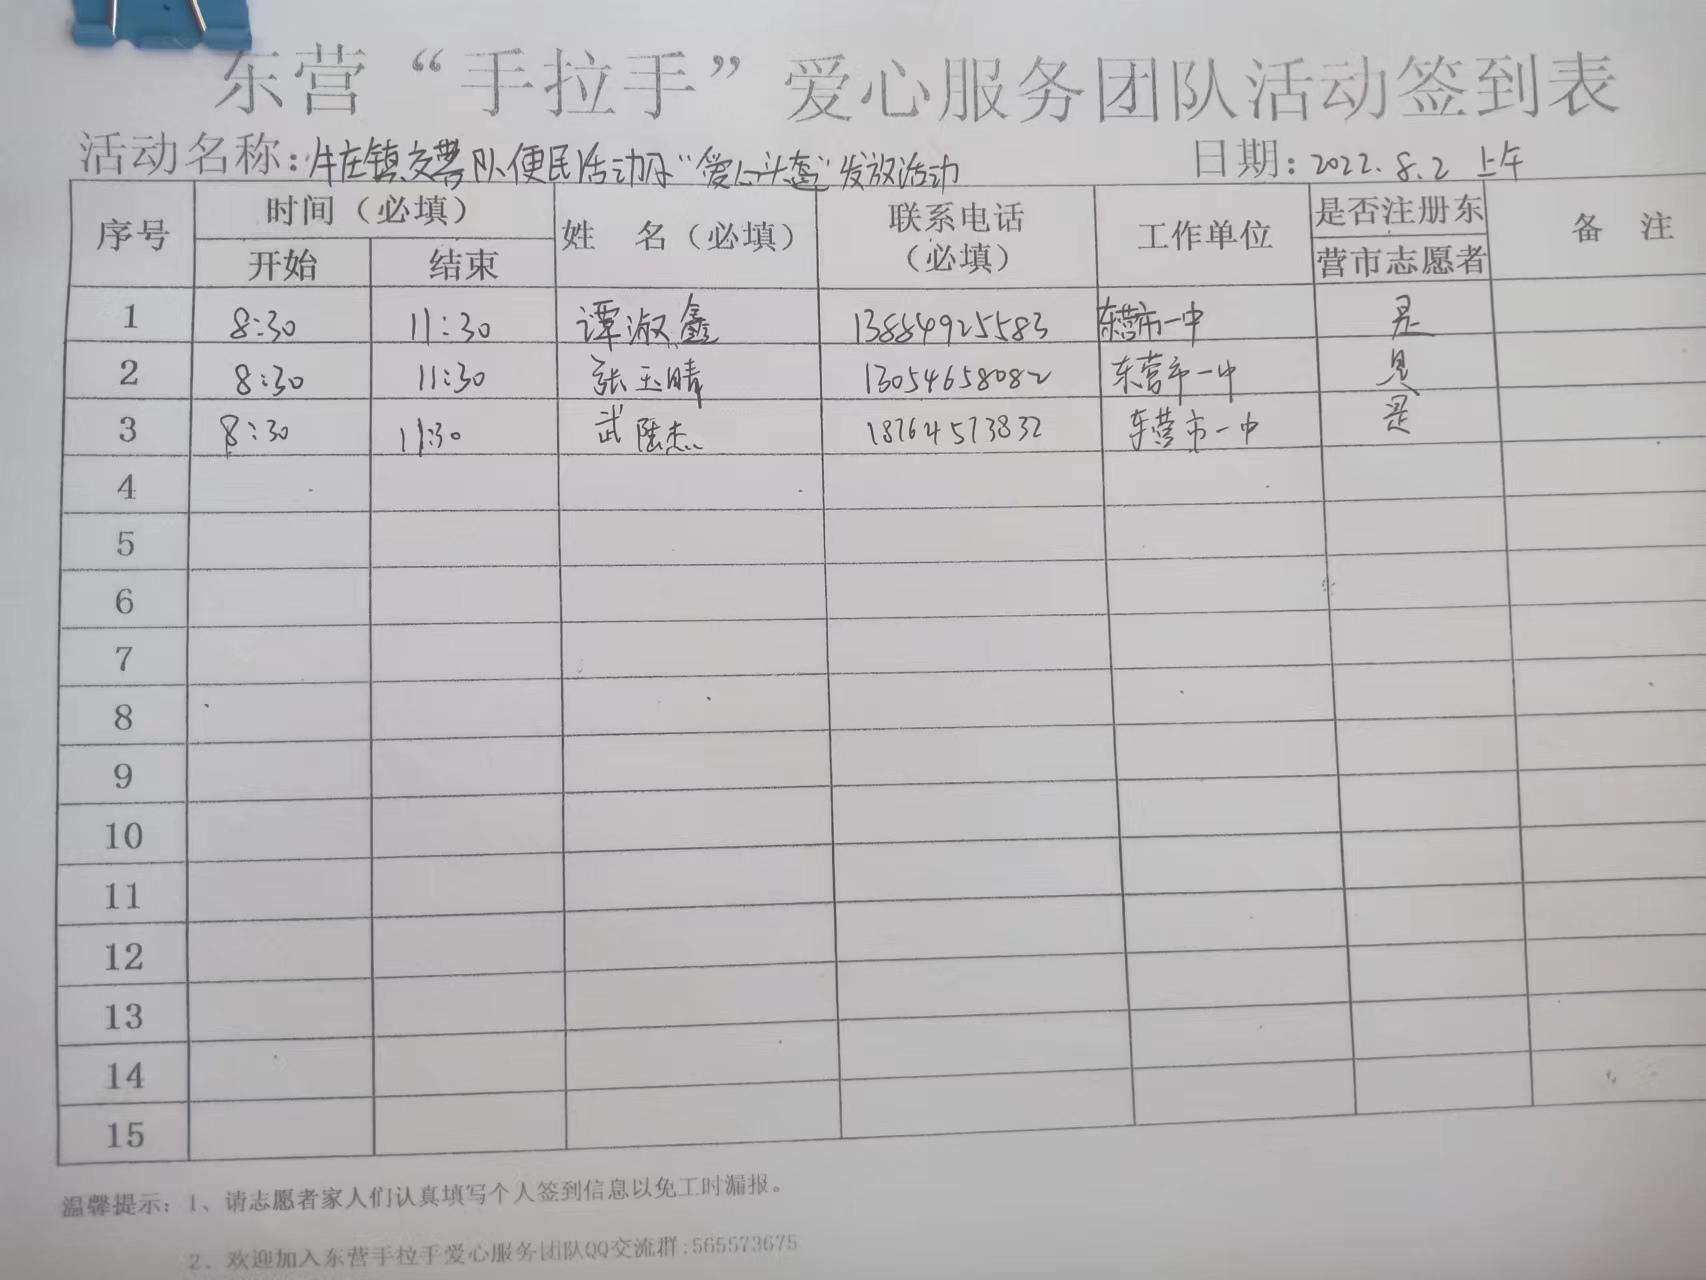 东营“手拉手”爱心服务团队活动签到表
活动名称：牛庄镇交警队便民活动及“爱心头盔”发放活动 日期：2022.8.2 上午
序号 时间（必填） 姓 名（必填） 联系电话（必填） 工作单位 是否注册东营市志愿者 备 注
开始 结束
1 8:30 11:30 谭淑鑫 13884925583 东营市一中 是
2 8:30 11:30 张玉晴 13054658082 东营市一中 是
3 8:30 11:30 武陆杰 18764573832 东营市一中 是
4
5
6
7
8
9
10
11
12
13
14
15
温馨提示：1、请志愿者家人们认真填写个人签到信息以免工时漏报。
2、欢迎加入东营手拉手爱心服务团队QQ交流群:565573675